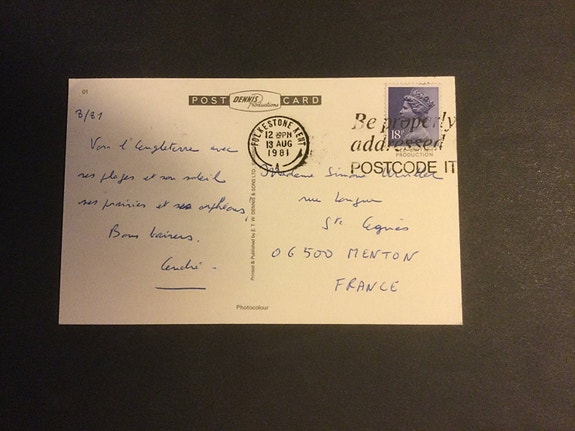 01
POST DENNIS Productions CARD
3/31
FOLKESTONE KENT
12 30PM
13 AUG
1981
Be properly
addressed
POSTCODE IT
18P
Voir l'Angleterre avec
ses plages et son soleil
ses prairies et ses orphéons,
Bons baisers.
André.
Printed & Published by E. T. W. DENNIS & SONS LTD
Madame Simone
rue Longue
Ste Agnès
06500 MENTON
FRANCE
Photocolour